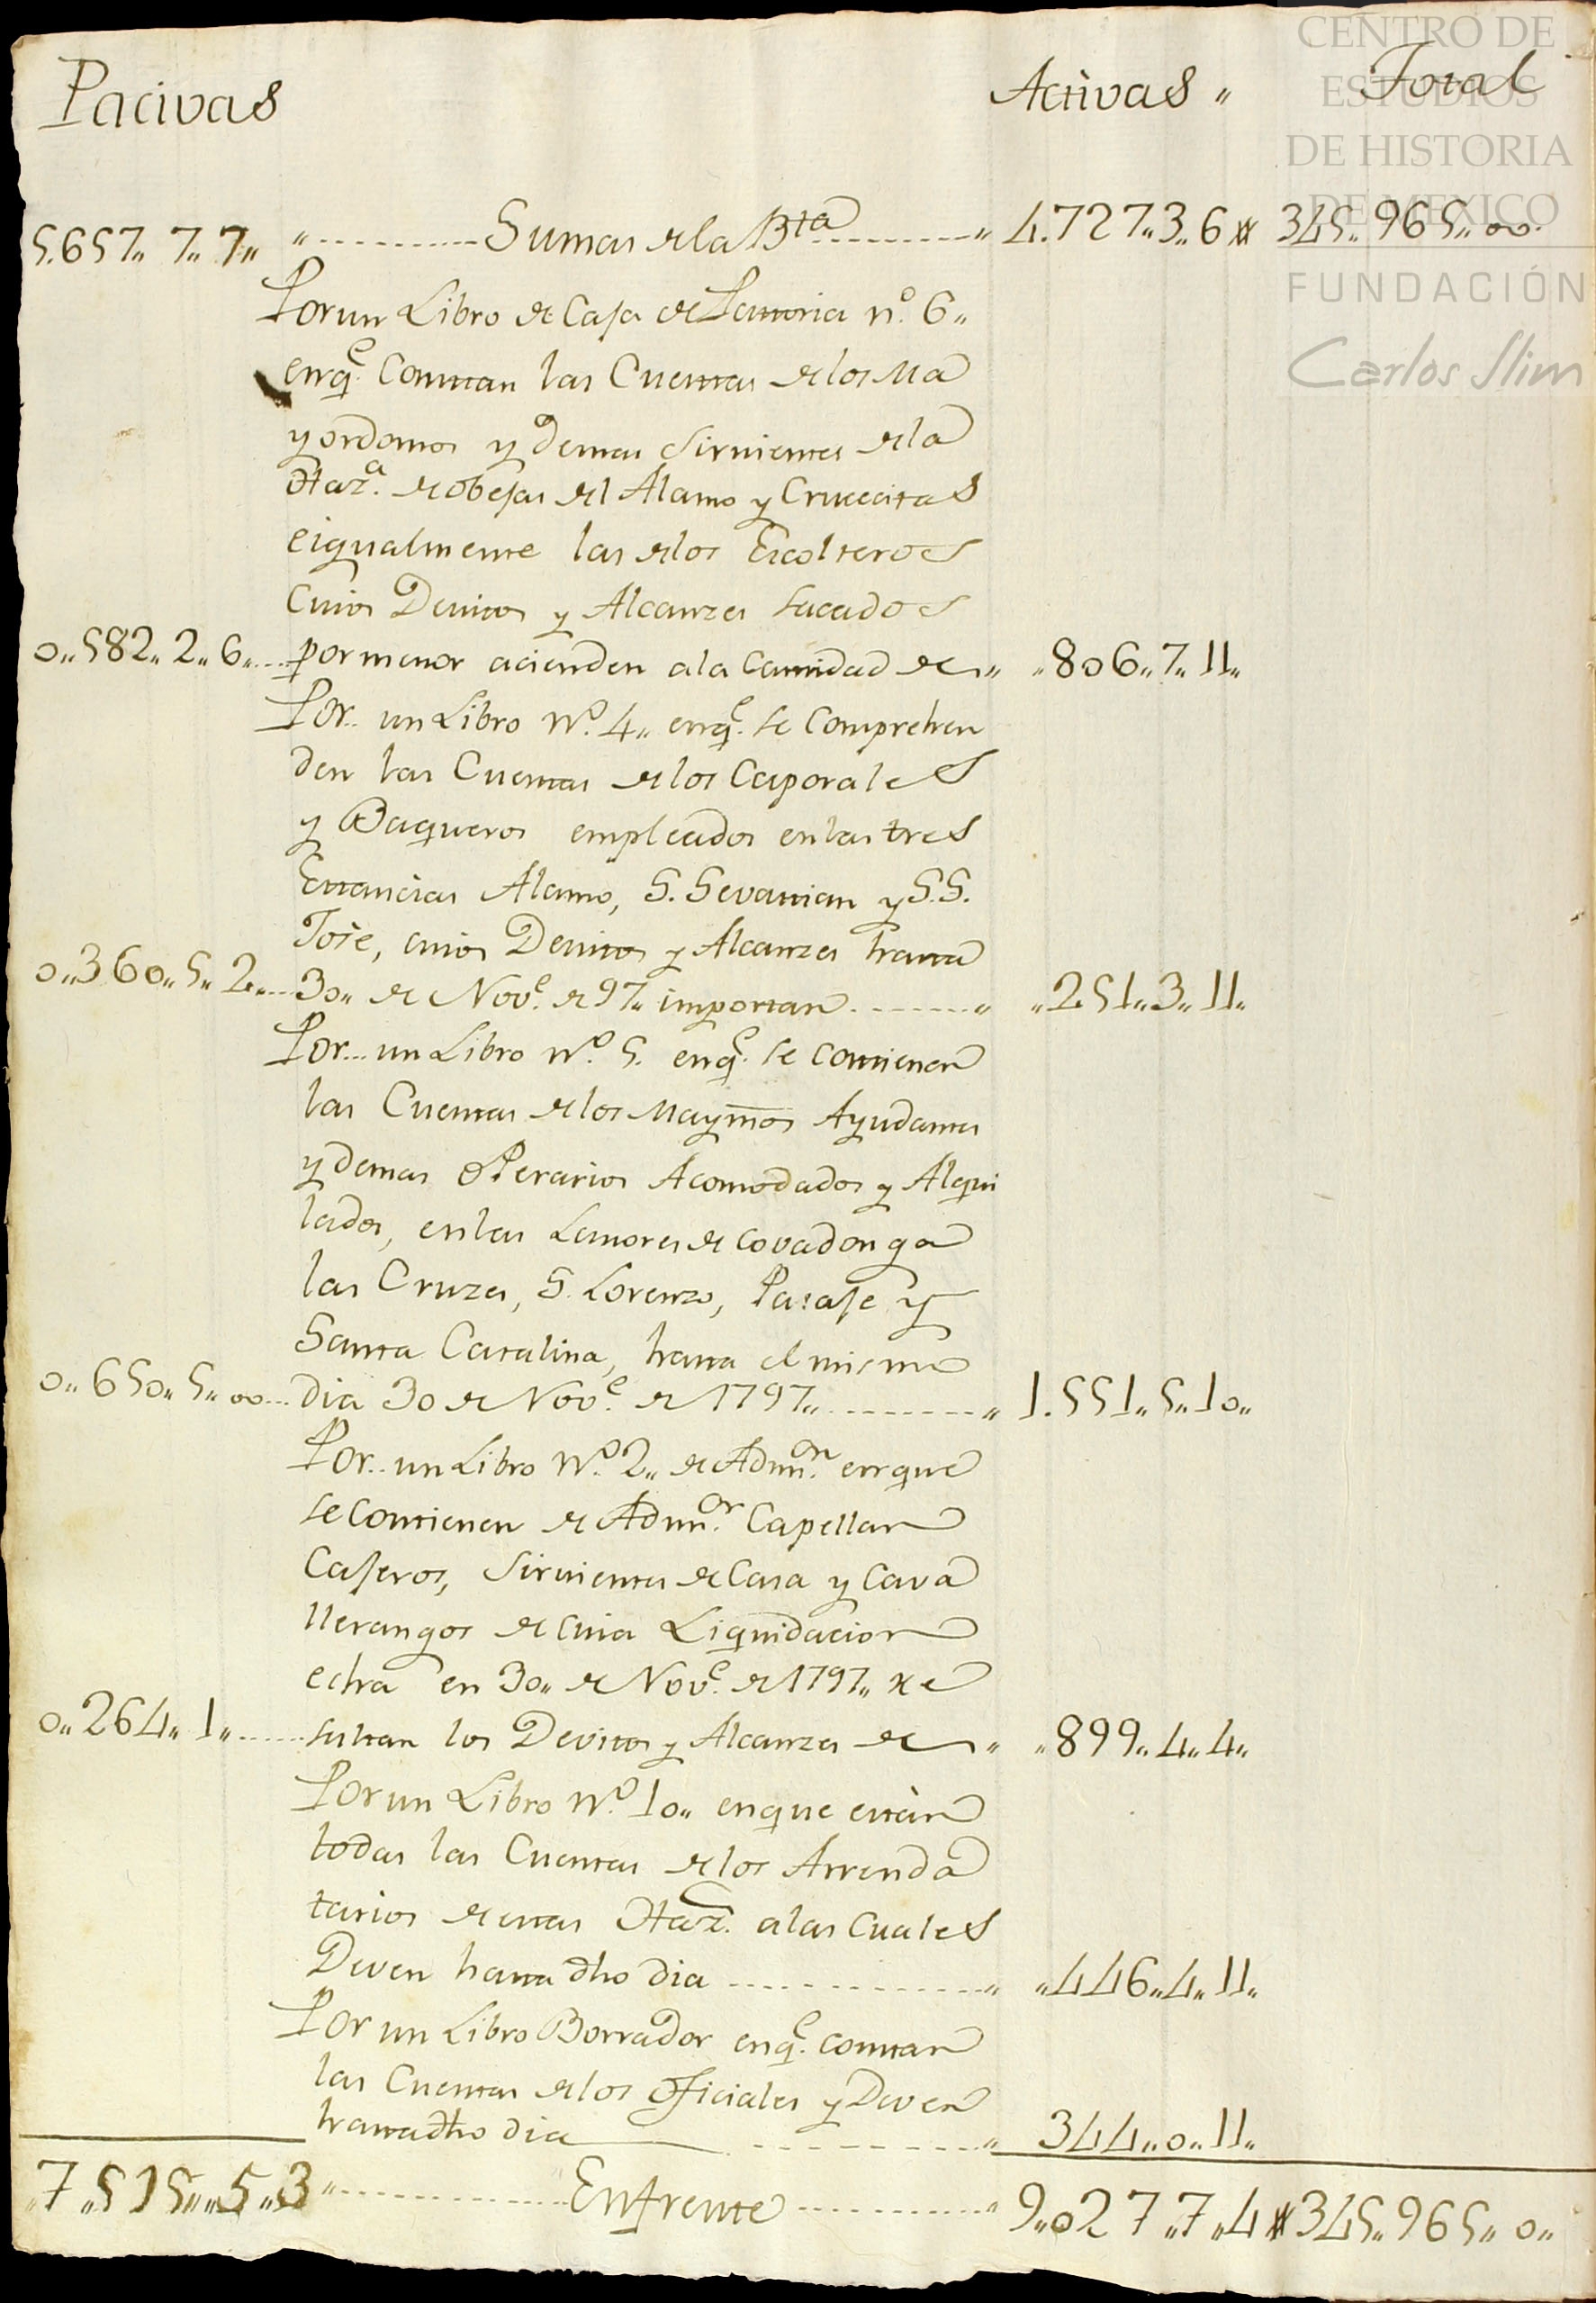 CENTRO DE
ESTUDIOS
DE HISTORIA
DE MEXICO
FUNDACIÓN
Carlos Slim
Pacivas Activas " Total
5.657" 7" 7" " Sumas de la Bta " 4.727"3"6 345"965"00
Por un Libro de Caja de Pastoria nº. 6"
en qe. Constan las Cuentas de los Ma
yordomos y demas sirvientes de la
Haza. de obejas del Alamo y Crucecitas
e igualmente las de los Escolteros
Cuios Devitos y Alcanzes sacados
0"582"2"6" por menor acienden a la Cantidad de " "806"7"11"
Por un Libro Nº. 4" en qe. se Comprehen
den las Cuentas de los Caporales
y Baqueros empleados en las tres
Estancias Alamo, S. Sevastian y S.S.
Jose, cuios Devitos y Alcanzes hasta
0"360"5"2" 30" de Nove. de 97" importan " "251"3"11"
Por un Libro Nº. 5. en qe. se contienen
las Cuentas de los Maymos Ayudantes
y demas OPerarios Acomodados y Alqui
lados, en las Lavores de Covadonga
las Cruzes, S. Lorenzo, Pasaje y
Santa Catalina, hasta el mismo
0"650"5"00 dia 30 de Nove. de 1797" " 1.551"5"10"
Por un Libro Nº. 2" de Admon. en que
se Contienen de Admor. Capellan
Cajeros, sirvientes de Casa y Cava
llerangos de cuia Liquidacion
echa en 30" de Nove. de 1797" re
0"264"1" sultan los Devitos y Alcanzes de " "899"4"4"
Por un Libro Nº. 10" en que están
todas las Cuentas de los Arrenda
tarios de estas Haz. a las Cuales
Deven hasta dho dia " "446"4"11"
Por un Libro Borrador en qe. constan
las Cuentas de los oficiales y Deven
hasta dho dia " 344"0"11"
"7"515"5"3" Enfrente " 9"027"7"4 345"965"0"